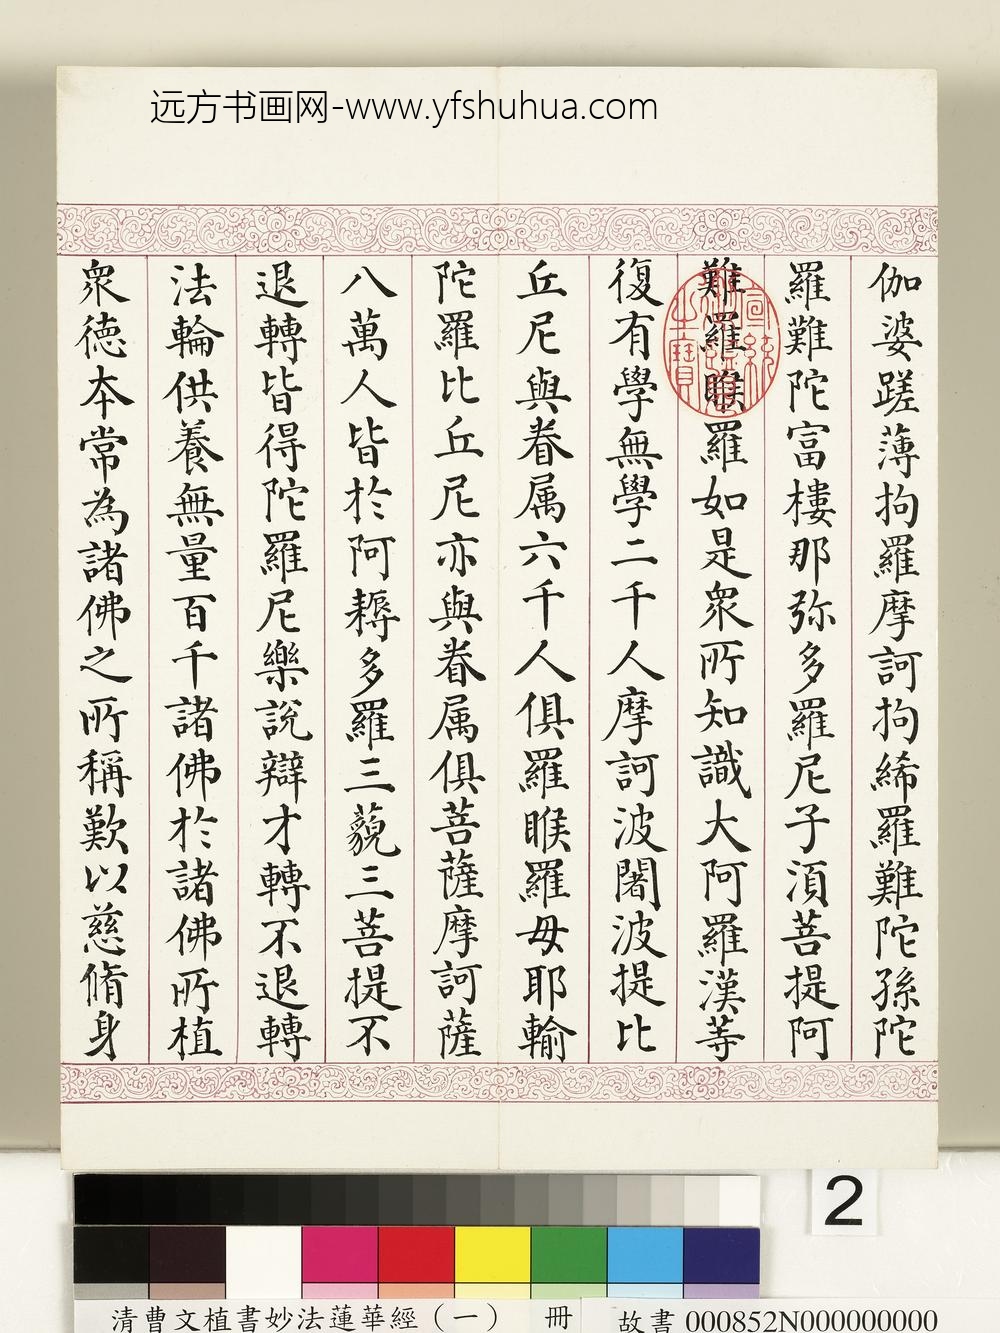 远方书画网-www.yfshuhua.com
伽婆蹉薄拘羅摩訶拘絺羅難陀孫陀
羅難陀富樓那弥多羅尼子湏菩提阿
難羅睺羅如是衆所知識大阿羅漢等
復有學無學二千人摩訶波闍波提比
丘尼與眷属六千人俱羅睺羅母耶輸
陀羅比丘尼亦與眷属俱菩薩摩訶薩
八萬人皆於阿耨多羅三藐三菩提不
退轉皆得陀羅尼樂說辯才轉不退轉
法輪供養無量百千諸佛於諸佛所植
衆德本常為諸佛之所稱歎以慈脩身
宣統御覽之寶
2
清曹文植書妙法蓮華經（一） 冊
故書 000852N000000000